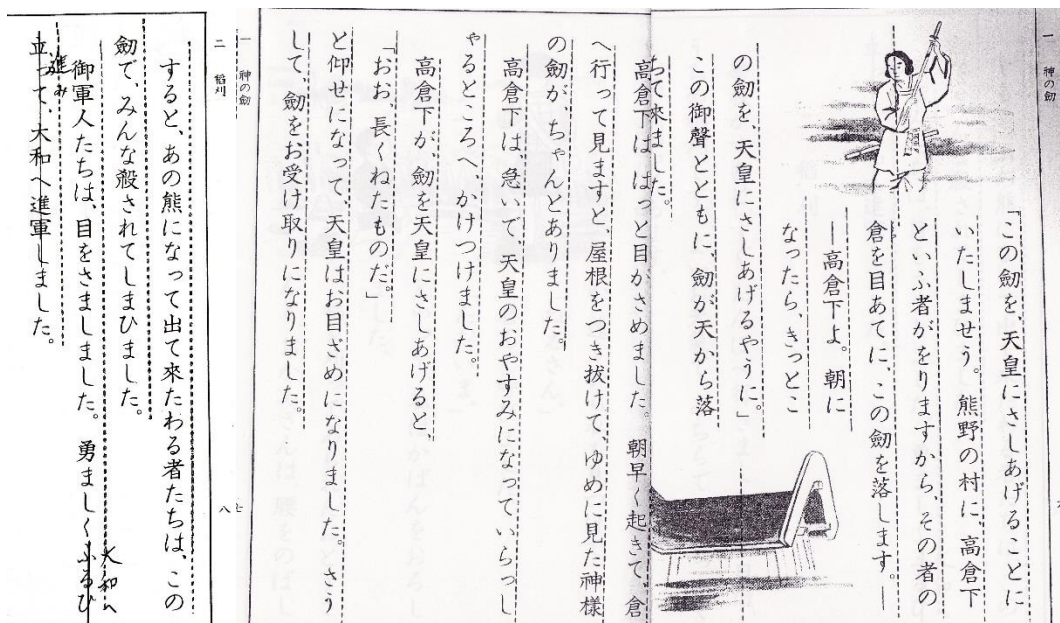 一 神の劒
「この劒を、天皇にさしあげることに
いたしませう。熊野の村に、高倉下
といふ者がをりますから、その者の
倉を目あてに、この劒を落します。―
―高倉下よ。朝に
なったら、きっとこ
の劒を、天皇にさしあげるやうに。」
この御聲とともに、劒が天から落
ちて來ました。
高倉下は はっと目がさめました。朝早く起きて、倉
へ行って見ますと、屋根をつき拔けて、ゆめに見た神樣
の劒が、ちゃんとありました。
高倉下は、急いで、天皇のおやすみになっていらっし
ゃるところへ、かけつけました。
高倉下が、劒を天皇にさしあげると、
「おお、長くねたものだ。」
と仰せになって、天皇はお目ざめになりました。さう
して、劒をお受け取りになりました。
一 神の劒
七
二 稻刈
八
すると、あの熊になって出て來たわる者たちは、この
劒で、みんな殺されてしまひました。
御軍人たちは、目をさましました。勇ましくふるひ
大和へ
進み
立って、大和へ進軍しました。